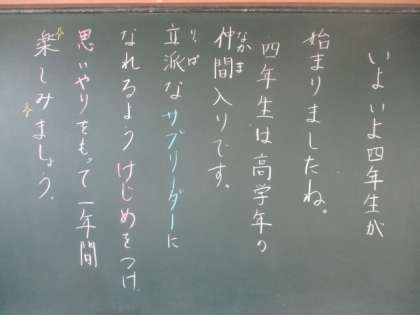 いよいよ四年生が
始まりましたね。
四年生は高学年の
仲間入りです。
立派なサブリーダーに
なれるようけじめをつけ
思いやりをもって一年間
楽しみましょう。
なかま
りっぱ